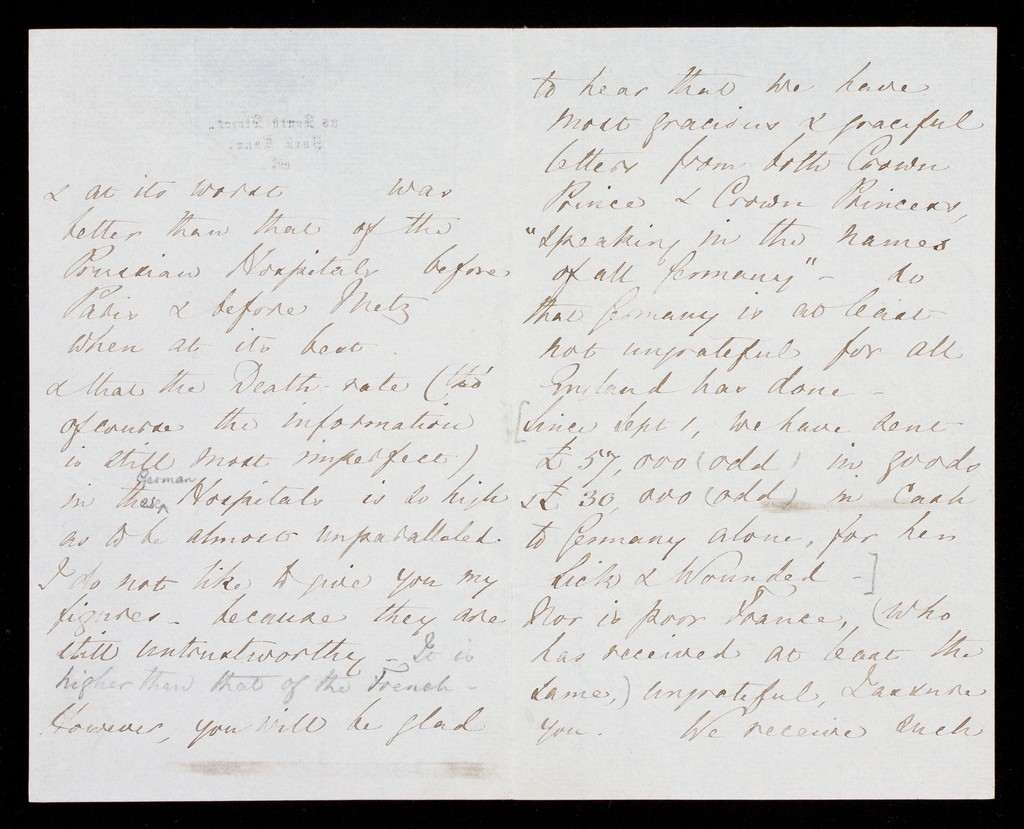 & at its worst was
better than that of the
Prussian Hospitals before
Paris & before Metz
when at its best.
& that the Death-rate (tho'
of course the information
is still most imperfect)
German
in these Hospitals is so high
as to be almost unparalleled.
I do not like to give you my
figures - because they are
still untrustworthy - It is
higher than that of the French -
However, you will be glad
to hear that we have
most gracious & graceful
letters from both Crown
Prince & Crown Princess,
"speaking in the names
of all Germany" - so
that Germany is at least
not ungrateful for all
England has done -
[Since Sept 1, we have sent
£57,000 (odd) in goods
& £30,000 (odd) in Cash
to Germany alone, for her
Sick & Wounded -]
Nor is poor France, (who
has received at least the
same,) ungrateful, I assure
you. We receive such